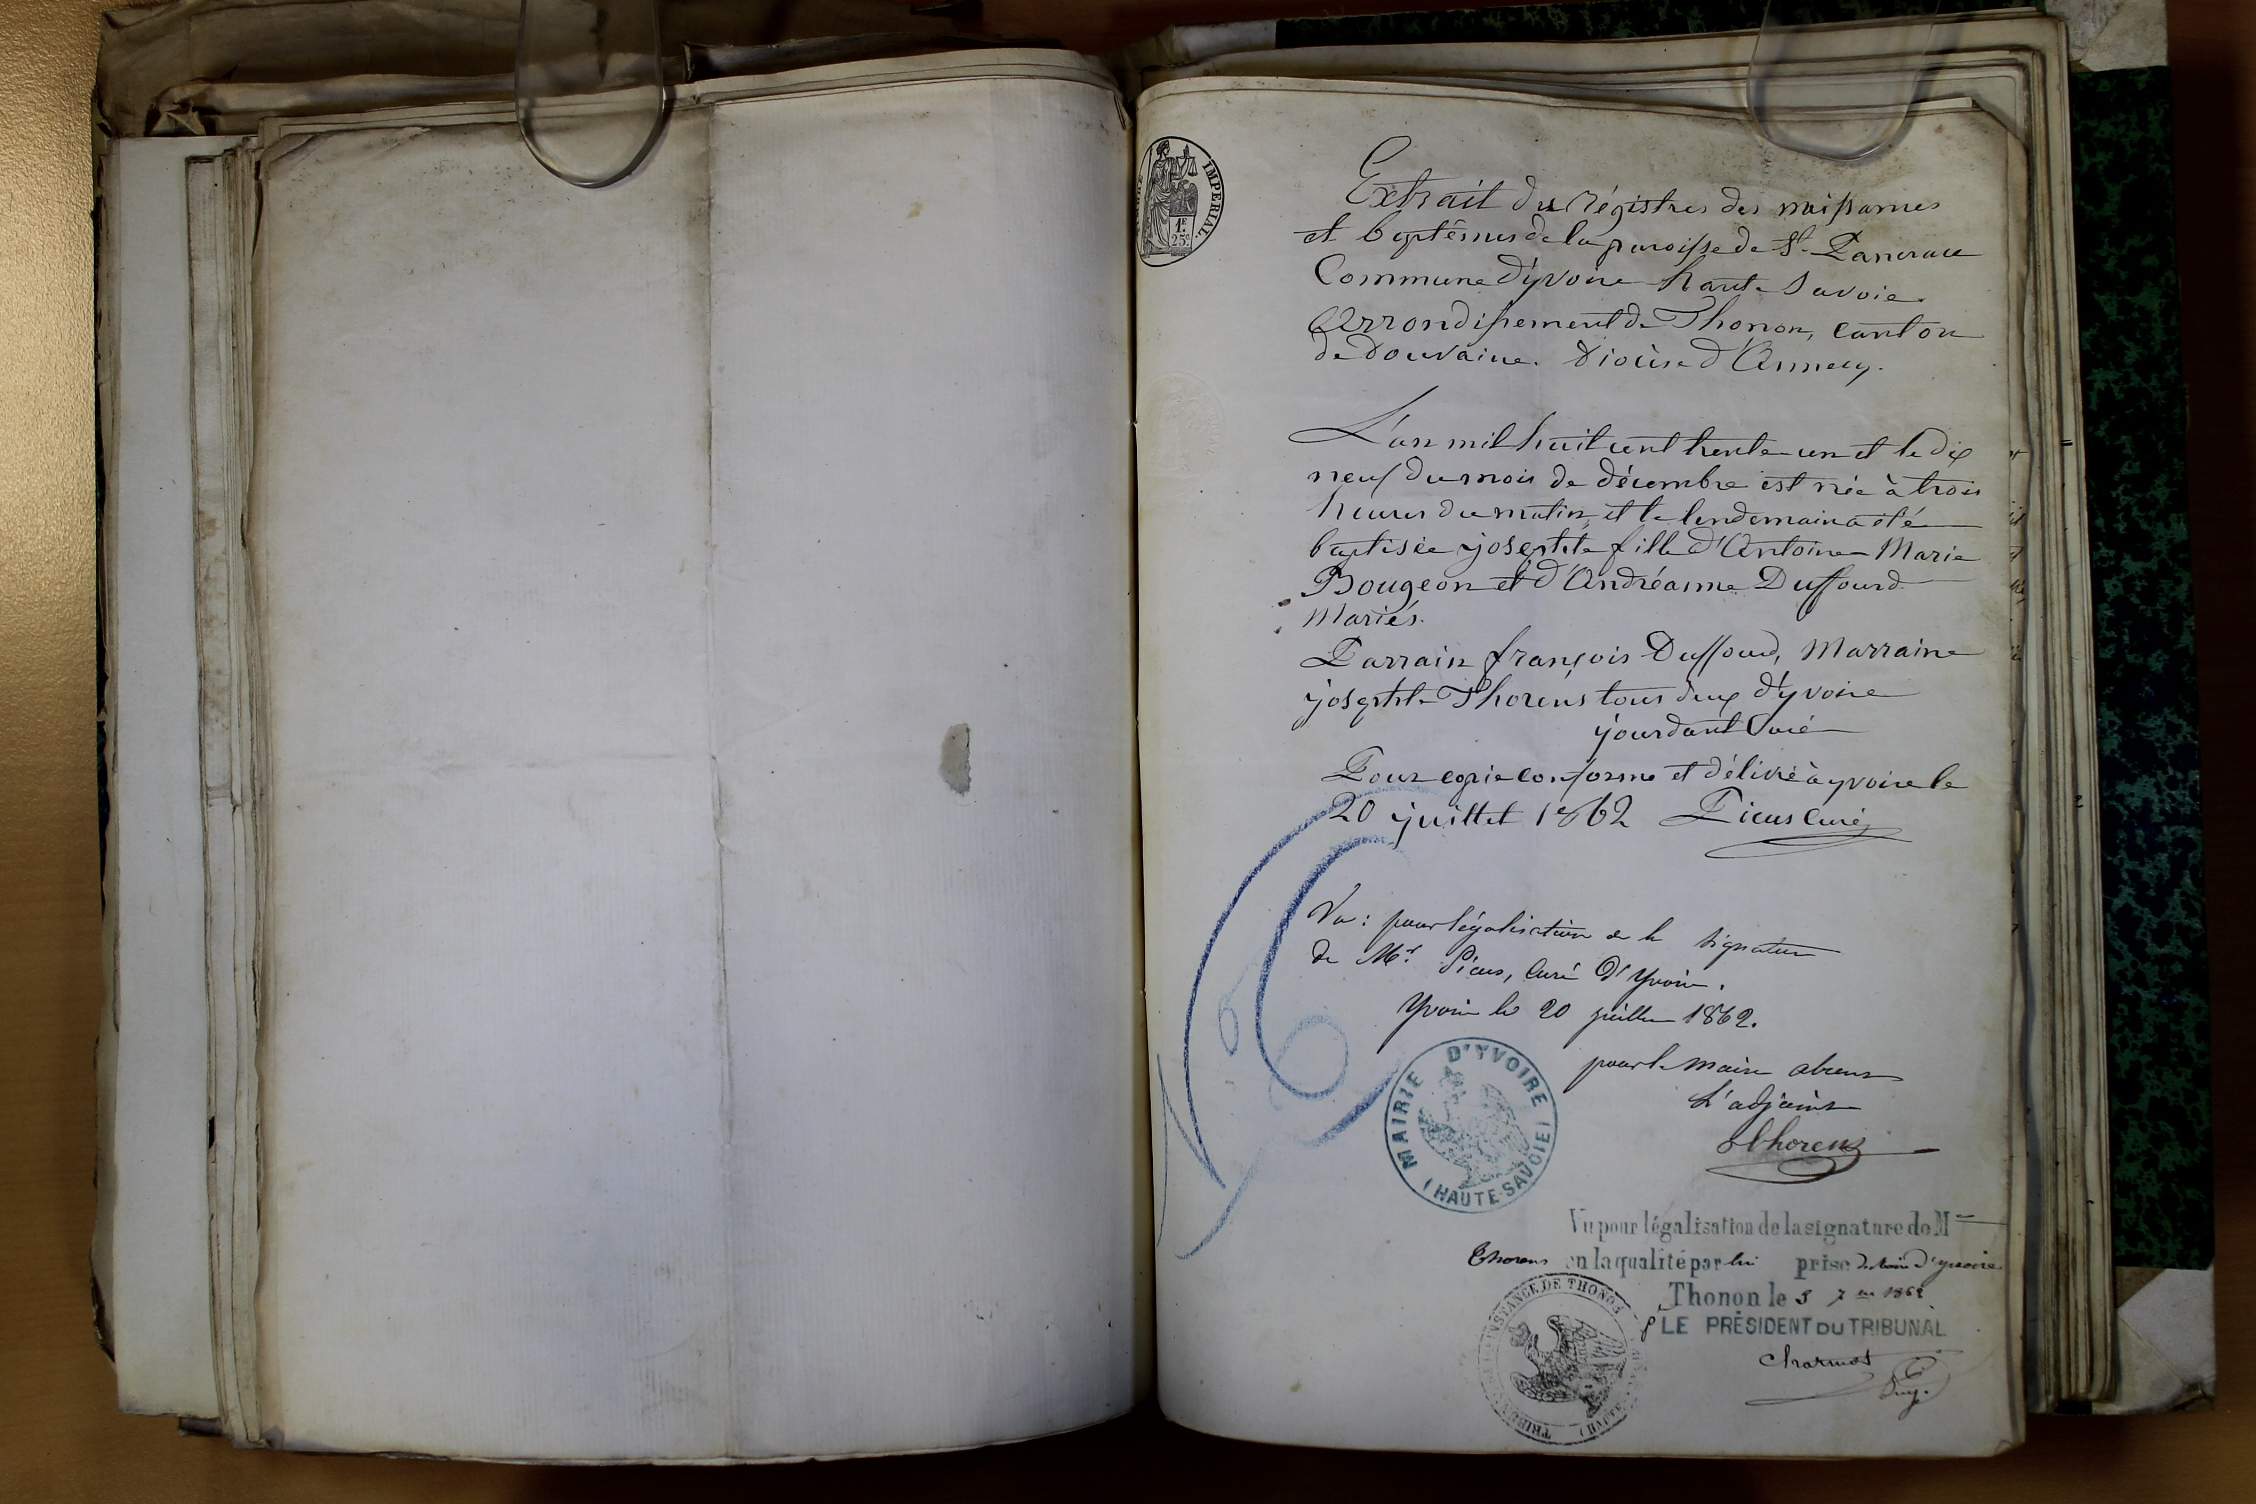 IMPERIAL.
1F.
25c
Extrait des Régistres des naissances
et baptêmes de la paroisse de St. Pancrace
Commune d'yvoire haute Savoie.
Arrondissement de Thonon, canton
de Douvaine. Diocèse d'Annecy.
L'an mil huit cent trente-un et le dix
neuf du mois de décembre est née à trois
heures du matin, et le lendemain a été
baptisée josephte fille d'Antoine-Marie
Bougeon et d'Andréanne Duffourd
Mariés.
Parrain françois Duffourd, Marraine
josephte Thorens tous deux d'yvoire
jourdant Curé
Pour copie conforme et délivré à yvoire le
20 juillet 1862 Picus Curé
Vu : pour légalisation de la signature
de Mr. Picus, Curé d'Yvoire.
Yvoire le 20 juillet 1862.
pour le maire absent
L'adjoint
Thorens
MAIRIE D'YVOIRE
(HAUTE-SAVOIE)
Vu pour légalisation de la signature de Mr
Thorens en la qualité par lui prise de maire d'yvoire
Thonon le 3 7bre 1862
p LE PRÉSIDENT DU TRIBUNAL
Charmot
INSTANCE DE THONON